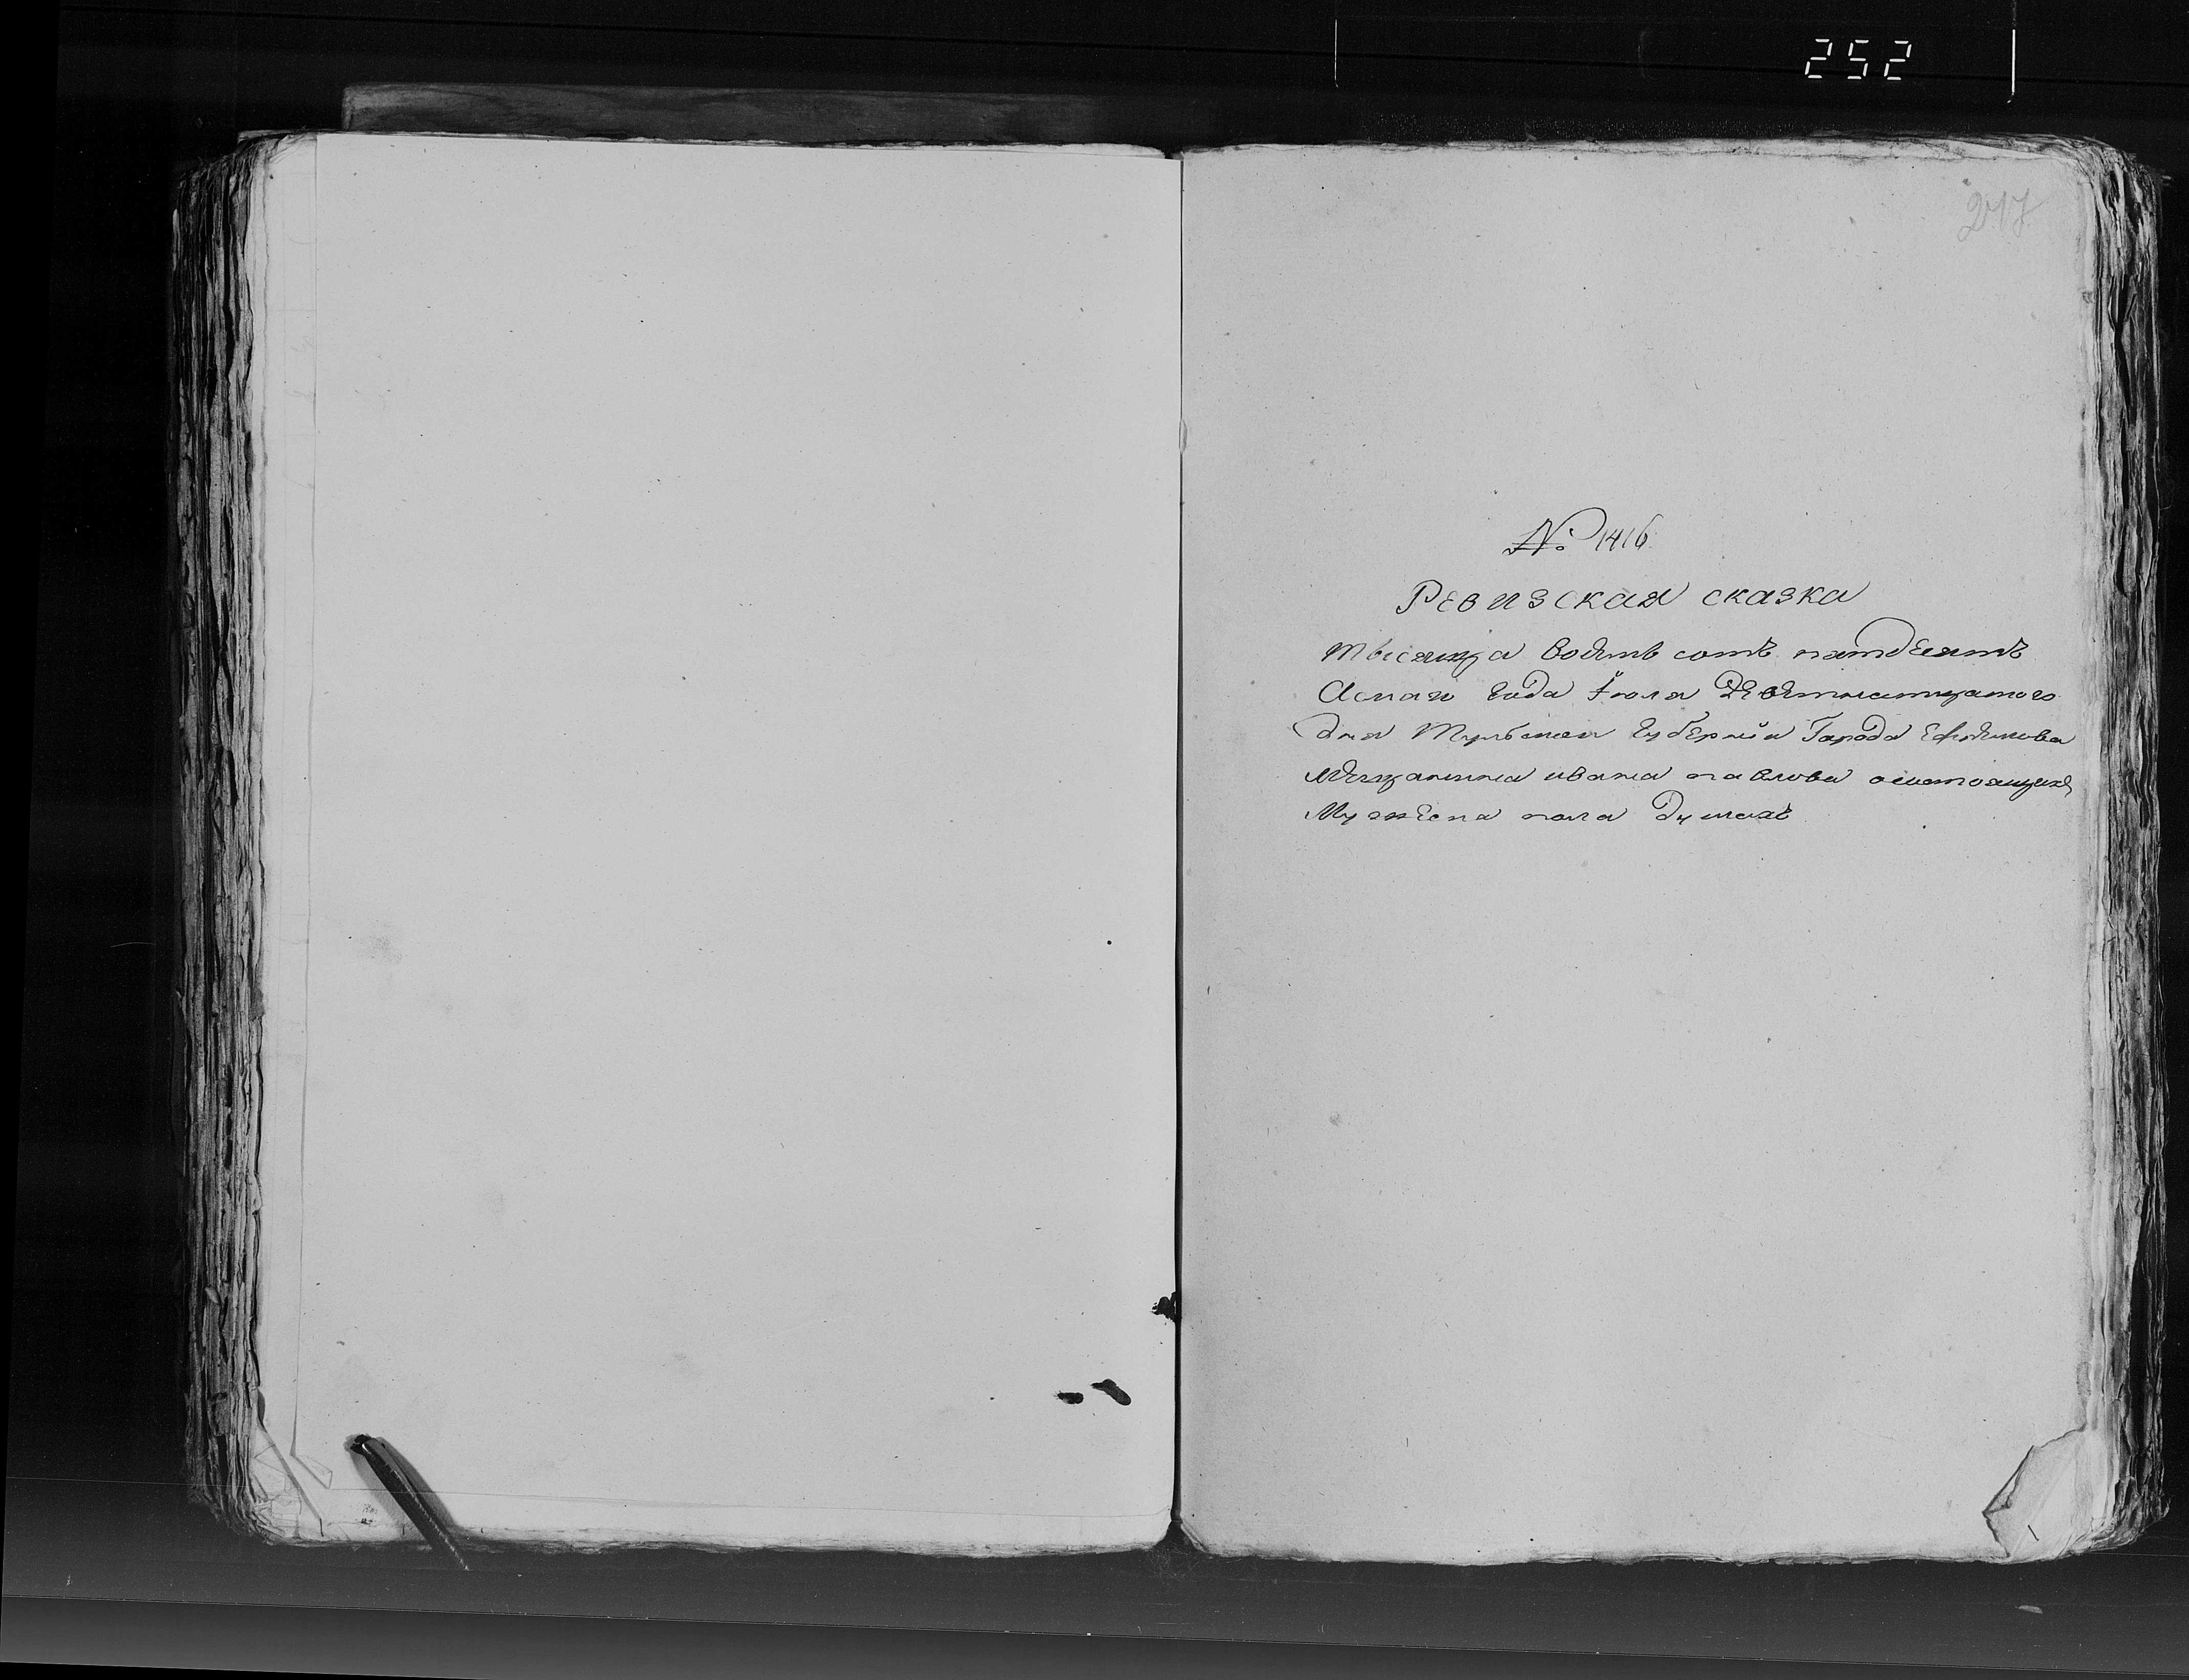 252
247
№ 1416
Ревизская сказка
тысяща восемь сотъ пятдесятъ
Аснаго года Іюля Девятнатцатого
дня Тульской Губерніи Города Ефремова
мещанина ивана павлова осостоящихъ
Мужеска пола Душахъ